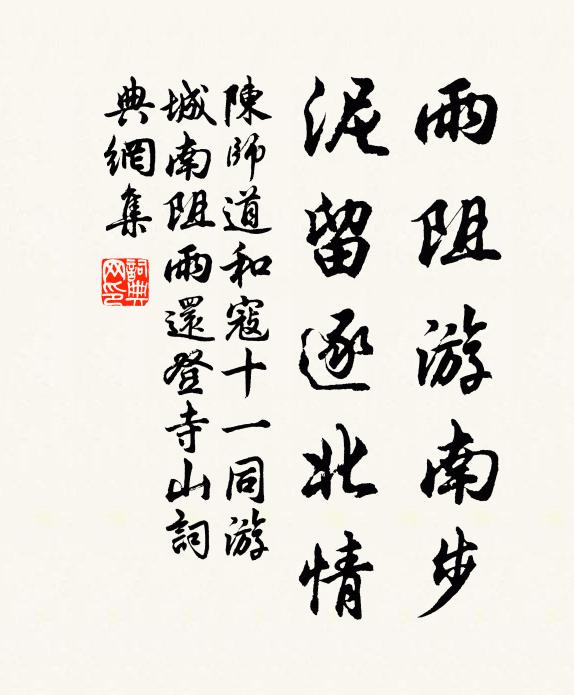 雨阻游南步
泥留逐北情
陳師道和寇十一同游
城南阻雨還登寺山詞
典網集
詞典
网印